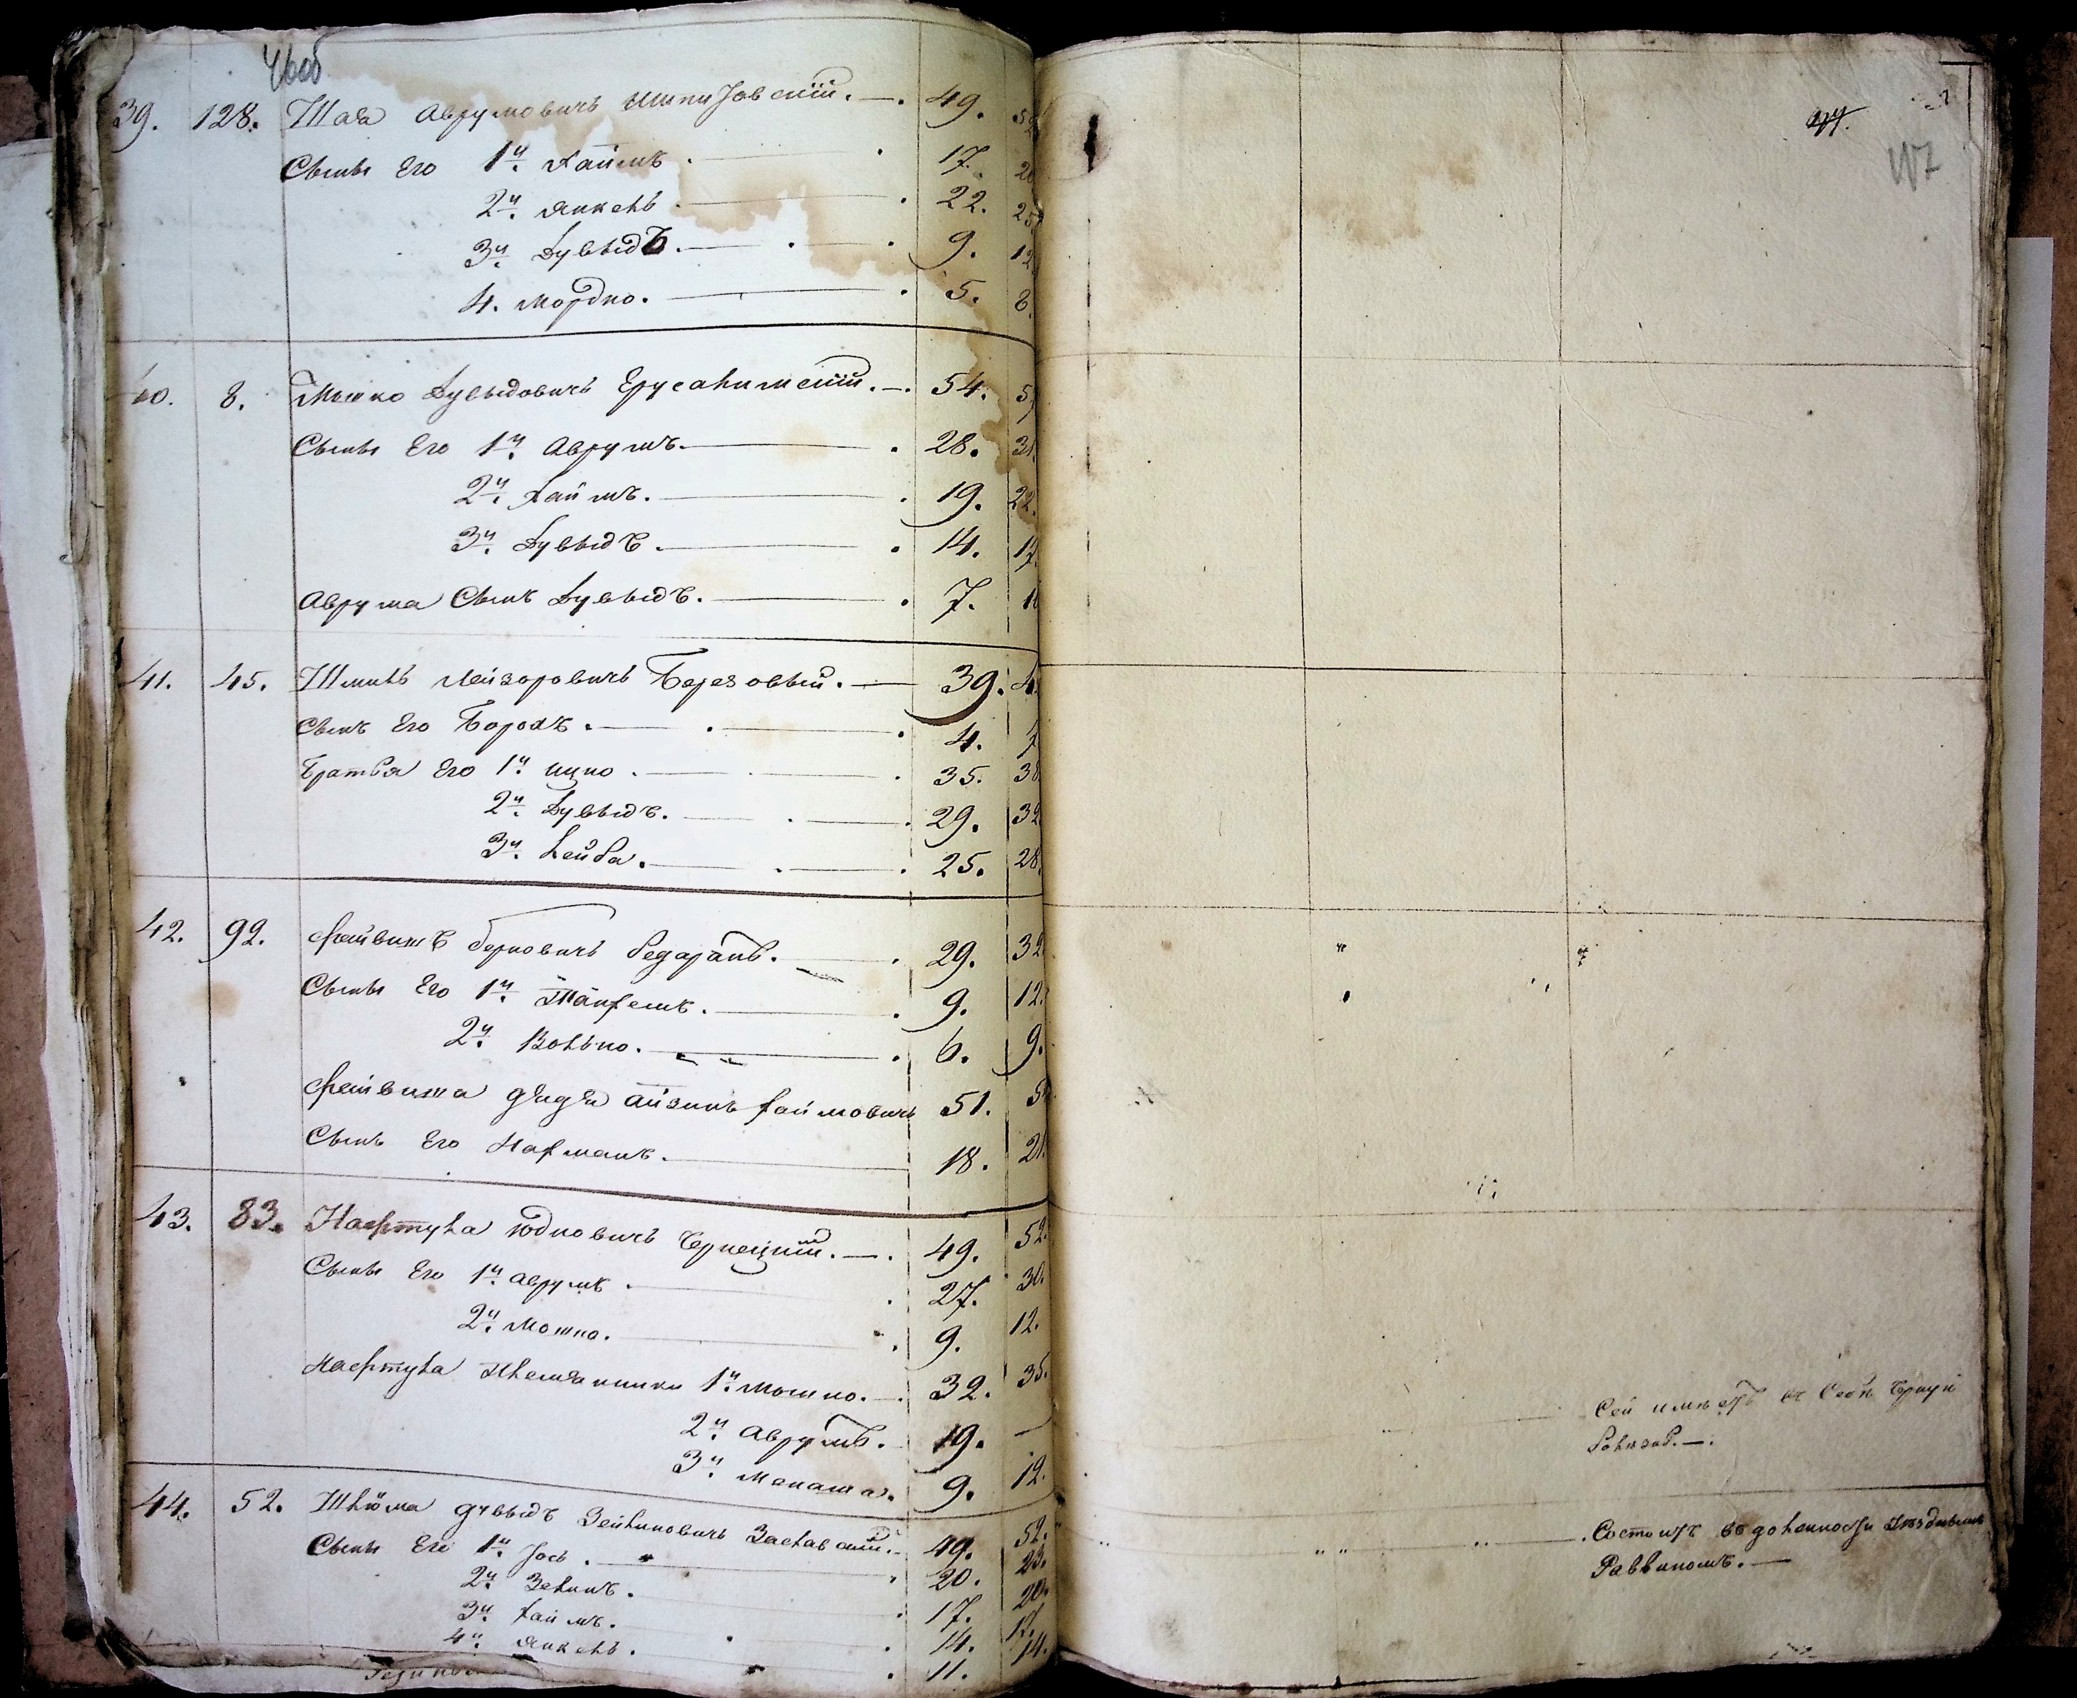 46об
39. 128. Шая Аврумовичъ 49.
Сыны Его 1й Хаимъ 17.
2й Янкель 22. 25
3й Дувыдъ. 9. 12
4. Мордко. 5. 8.
40. 8. Мошко Дувыдовичъ Ерусалимскій. 54. 57
Сыны Его 1й Аврумъ. 28. 31.
2й Хаймъ. 19. 22.
3й Дувыдъ. 14. 17.
Аврума Сынъ Дувыдъ. 7. 10
41. 45. Шмиль Лейзоровичъ Березовый. 39.
Сынъ Его Борохъ. 4. 7
Братья Его 1й Ицко. 35. 38
2й Дувыдъ. 29. 32
3й Лейба. 25. 28.
42. 92. Файвишъ Берковичъ 29. 32
Сыны Его 1й 9. 12.
2й Волько. 6. 9.
Файвиша дядя Айзикъ Хаймовичъ 51. 54
Сынъ Его Нахманъ. 18. 21.
43. 83. Нафтула Юдковичъ 49. 52.
Сыны Его 1й Аврумъ. 27. 30.
2й Мошко. 9. 12.
Нафтула Племянники 1й Мошко. 32. 35.
2й Аврумъ. 19. —
3й Манаша. 9. 12.
44. 52. Шлюма Дувыдъ Зейликовичъ Заславскій. 49. 52.
Сыны Его 1й Іось. 20. 23.
2й Зеликъ. 17. 20.
3й Хаймъ. 14. 17.
4й Янкель. 11. 14.
47
Сей имѣетъ въ Себѣ
Состоитъ въ должности Уѣзднымъ
Раввиномъ.